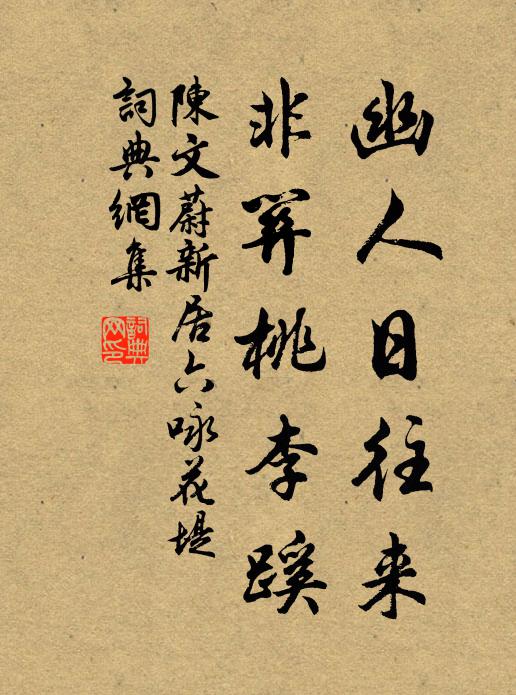 幽人日往来
非關桃李蹊
陳文蔚新居六咏花堤
詞典網集
詞典網印